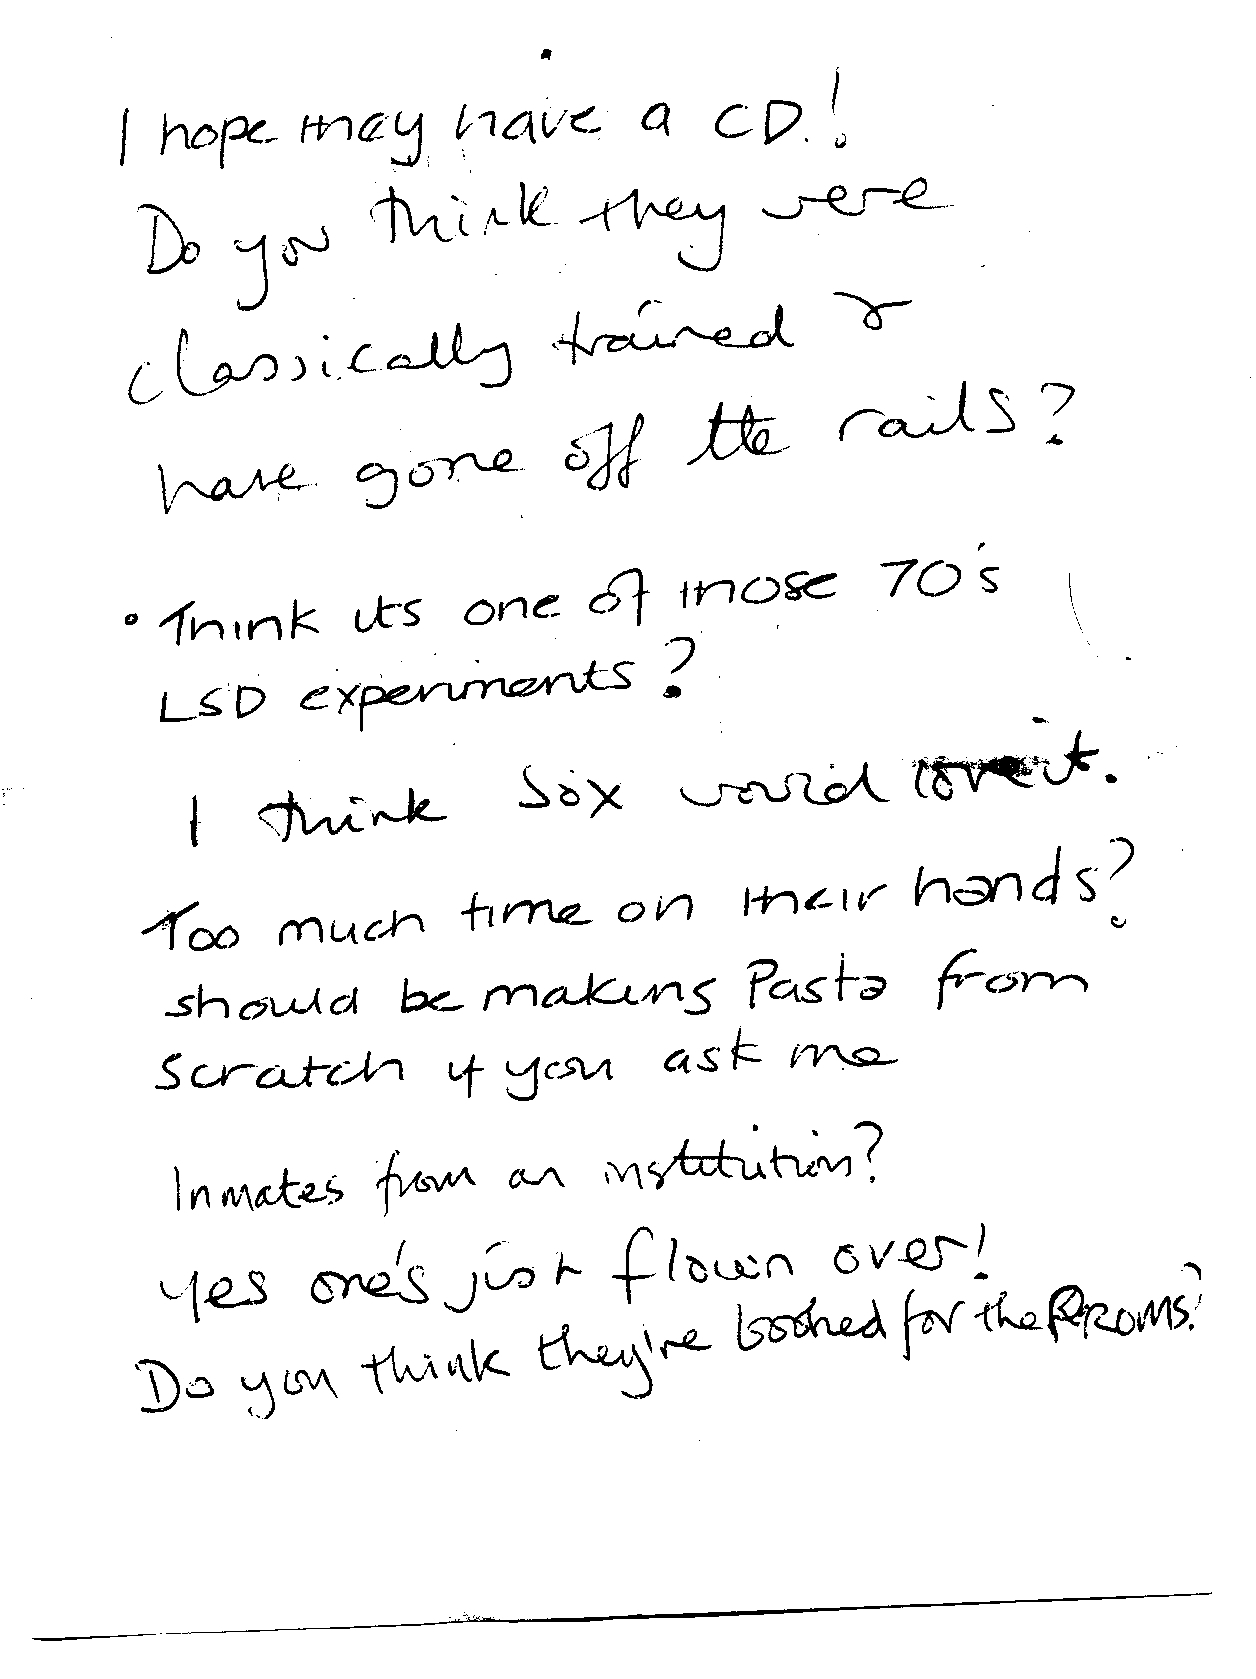 I hope they have a CD!
Do you think they were
classically trained &
have gone off the rails?
Think its one of those 70's
LSD experiments?
I think Sox would love it.
Too much time on their hands?
should be making Pasta from
scratch if you ask me
Inmates from an institution?
Yes one's just flown over!
Do you think they're booked for the PROMS?